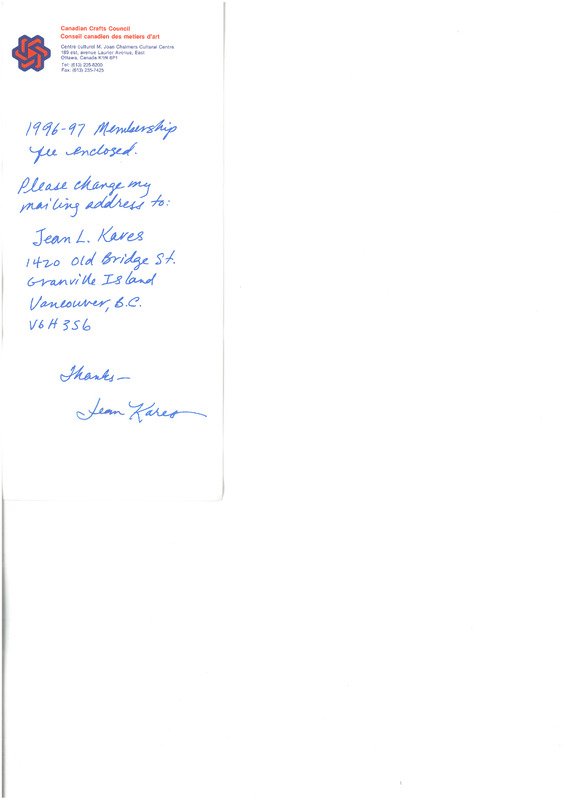 Canadian Crafts Council
Conseil canadien des metiers d'art
Centre culturel M. Joan Chalmers Cultural Centre
189 est, avenue Laurier Avenue, East
Ottawa, Canada K1N 6P1
Tel: (613) 235-8200
Fax: (613) 235-7425
1996-97 Membership
fee enclosed.
Please change my
mailing address to:
Jean L. Kares
1420 Old Bridge St.
Granville Island
Vancouver, B.C.
V6H 3S6
Thanks—
Jean Kares